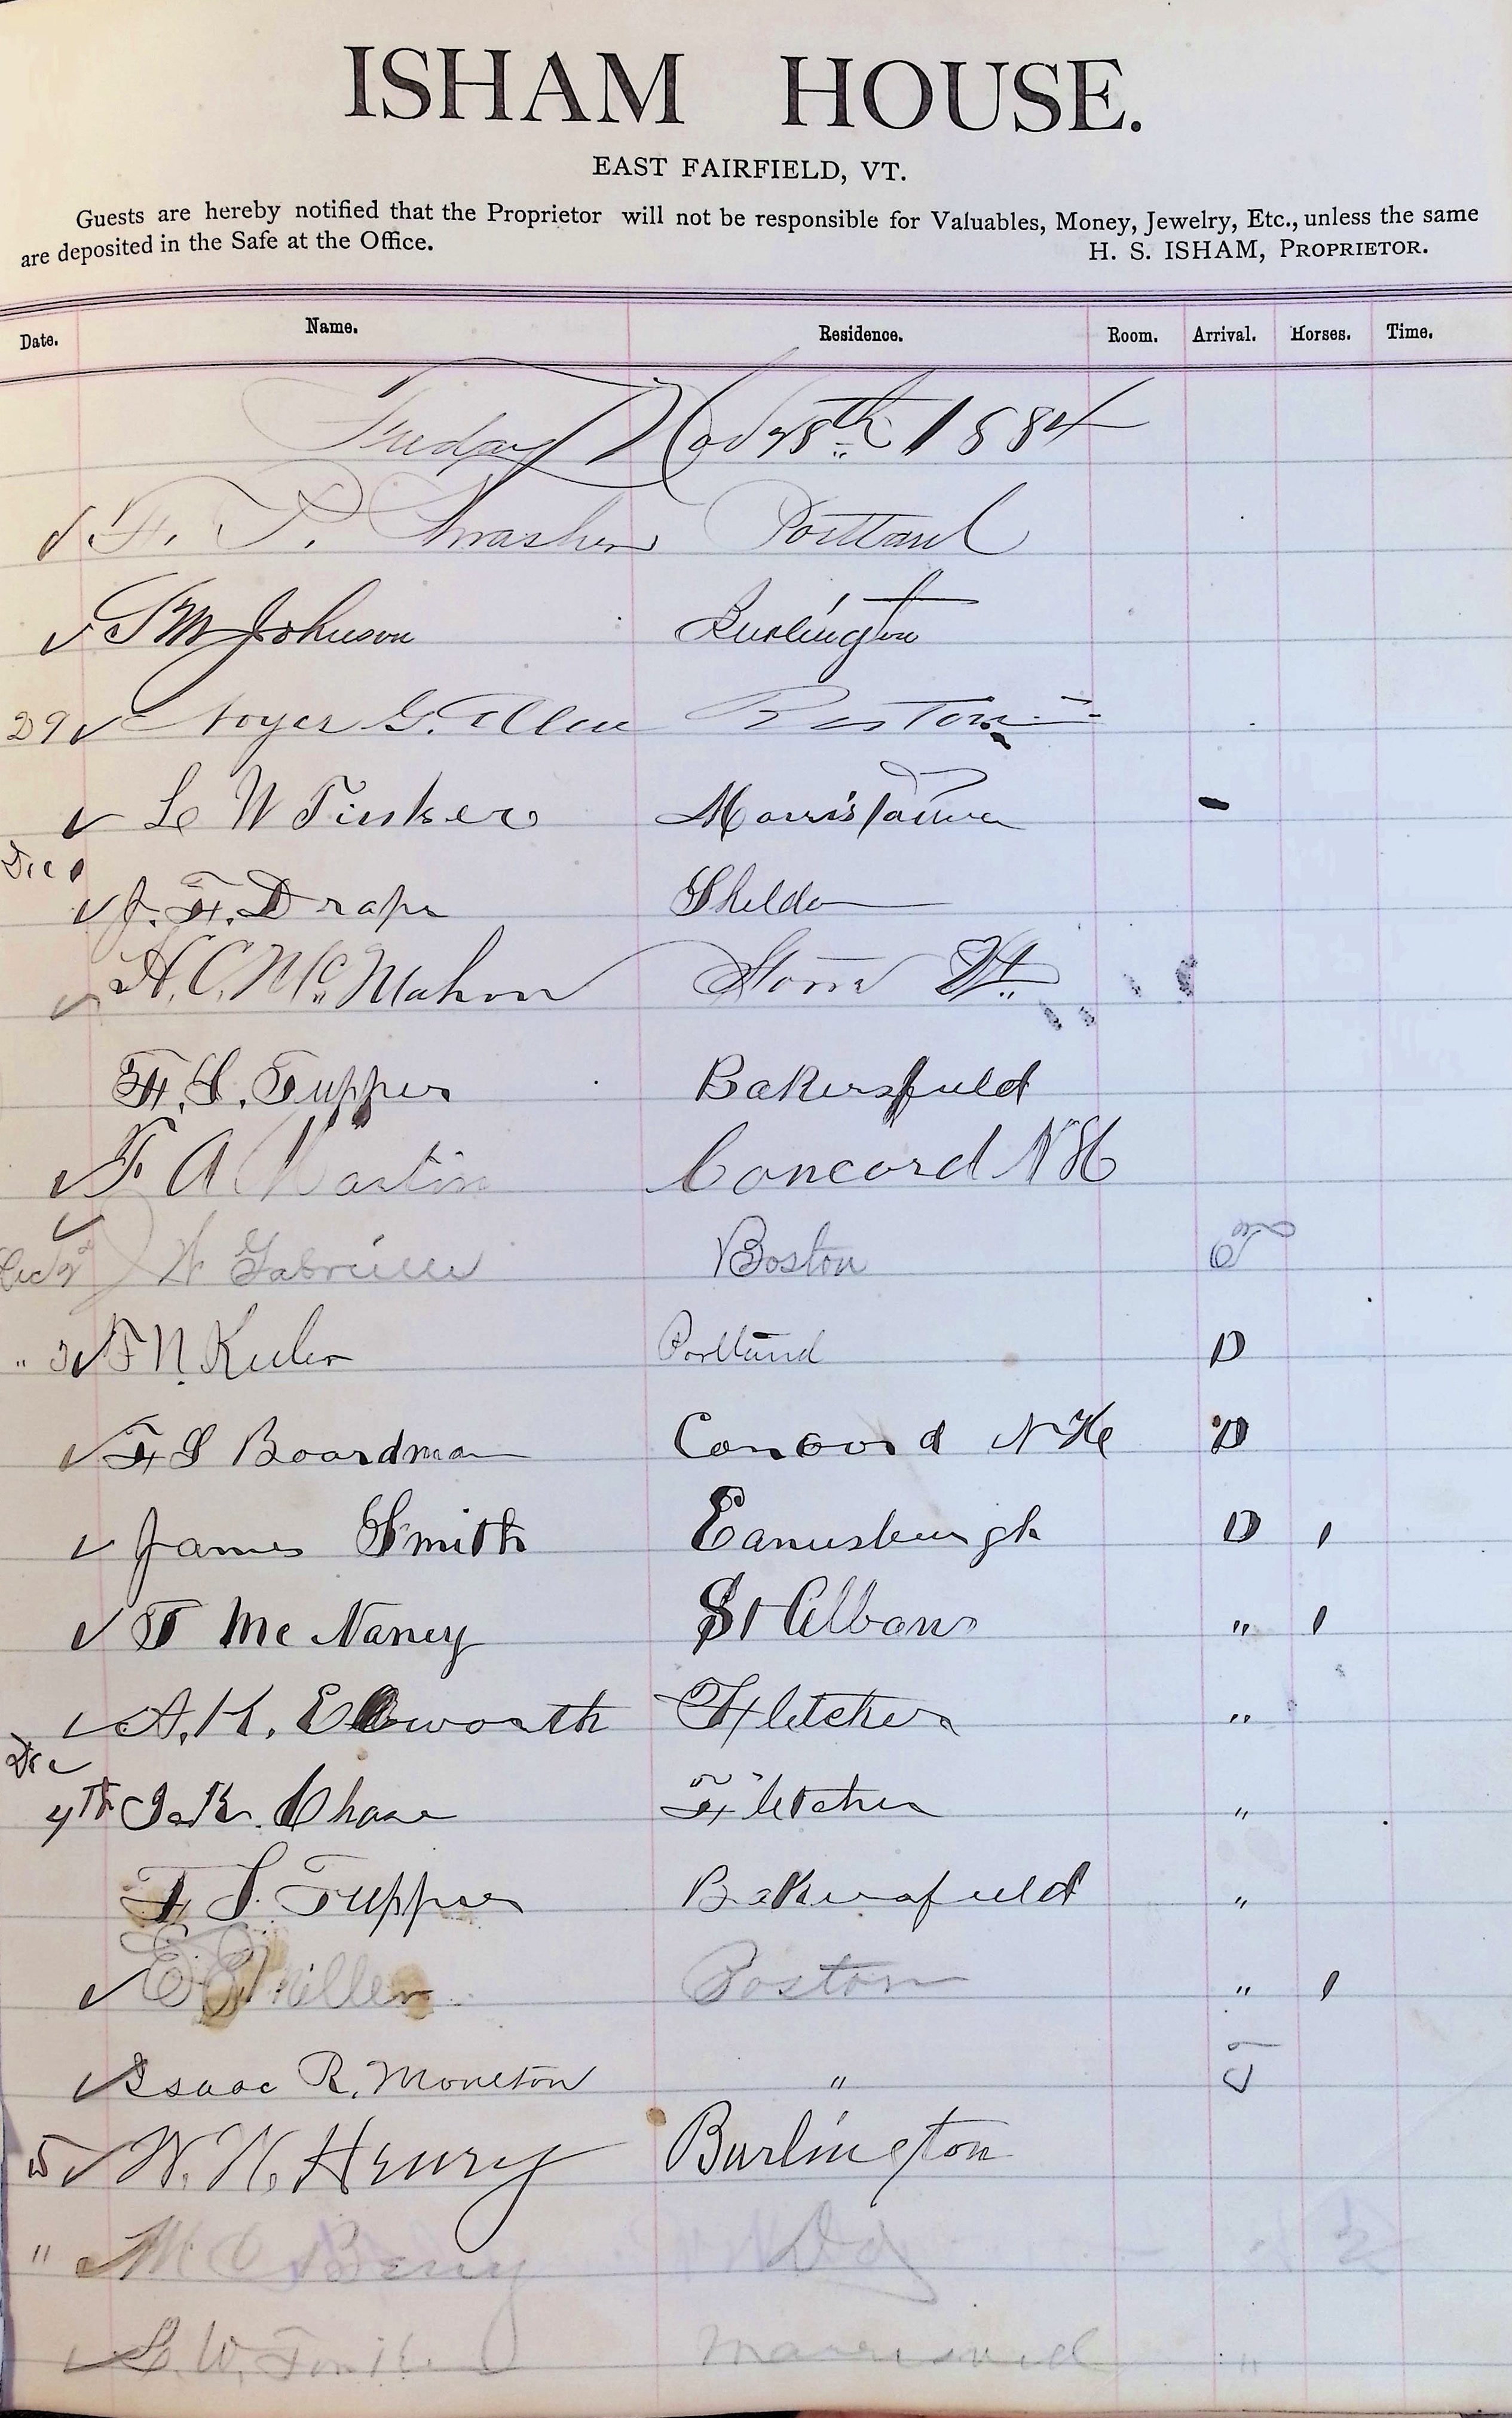 ISHAM HOUSE.
EAST FAIRFIELD, VT.
Guests are hereby notified that the Proprietor will not be responsible for Valuables, Money, Jewelry, Etc., unless the same
are deposited in the Safe at the Office.
H. S. ISHAM, PROPRIETOR.
Date. Name. Residence. Room. Arrival. Horses. Time.
Friday Nov 28th 1884
F. P. Portland
Johnson Burlington
29 Noyes G. Allen Boston
L W Tinker Morristown
Dec 1
J. F. Draper Sheldon
H. C. McMahon Stowe Vt.
F. S. Tupper Bakersfield
F. A Martin Concord NH
Dec 2 W Boston
" 3 F N Keeler Portland D
F S Boardman Concord N H D
James Smith Enusburgh D 1
T Mc Naney St Albans " 1
A. K. Ellsworth Fletcher "
Dec
4th Chase Fletcher "
F S. Tupper Bakersfield "
E E Miller Boston " 1
Isaac R. Moulton "
5 W. W. Henry Burlington
" M C Berry Do
L. W.